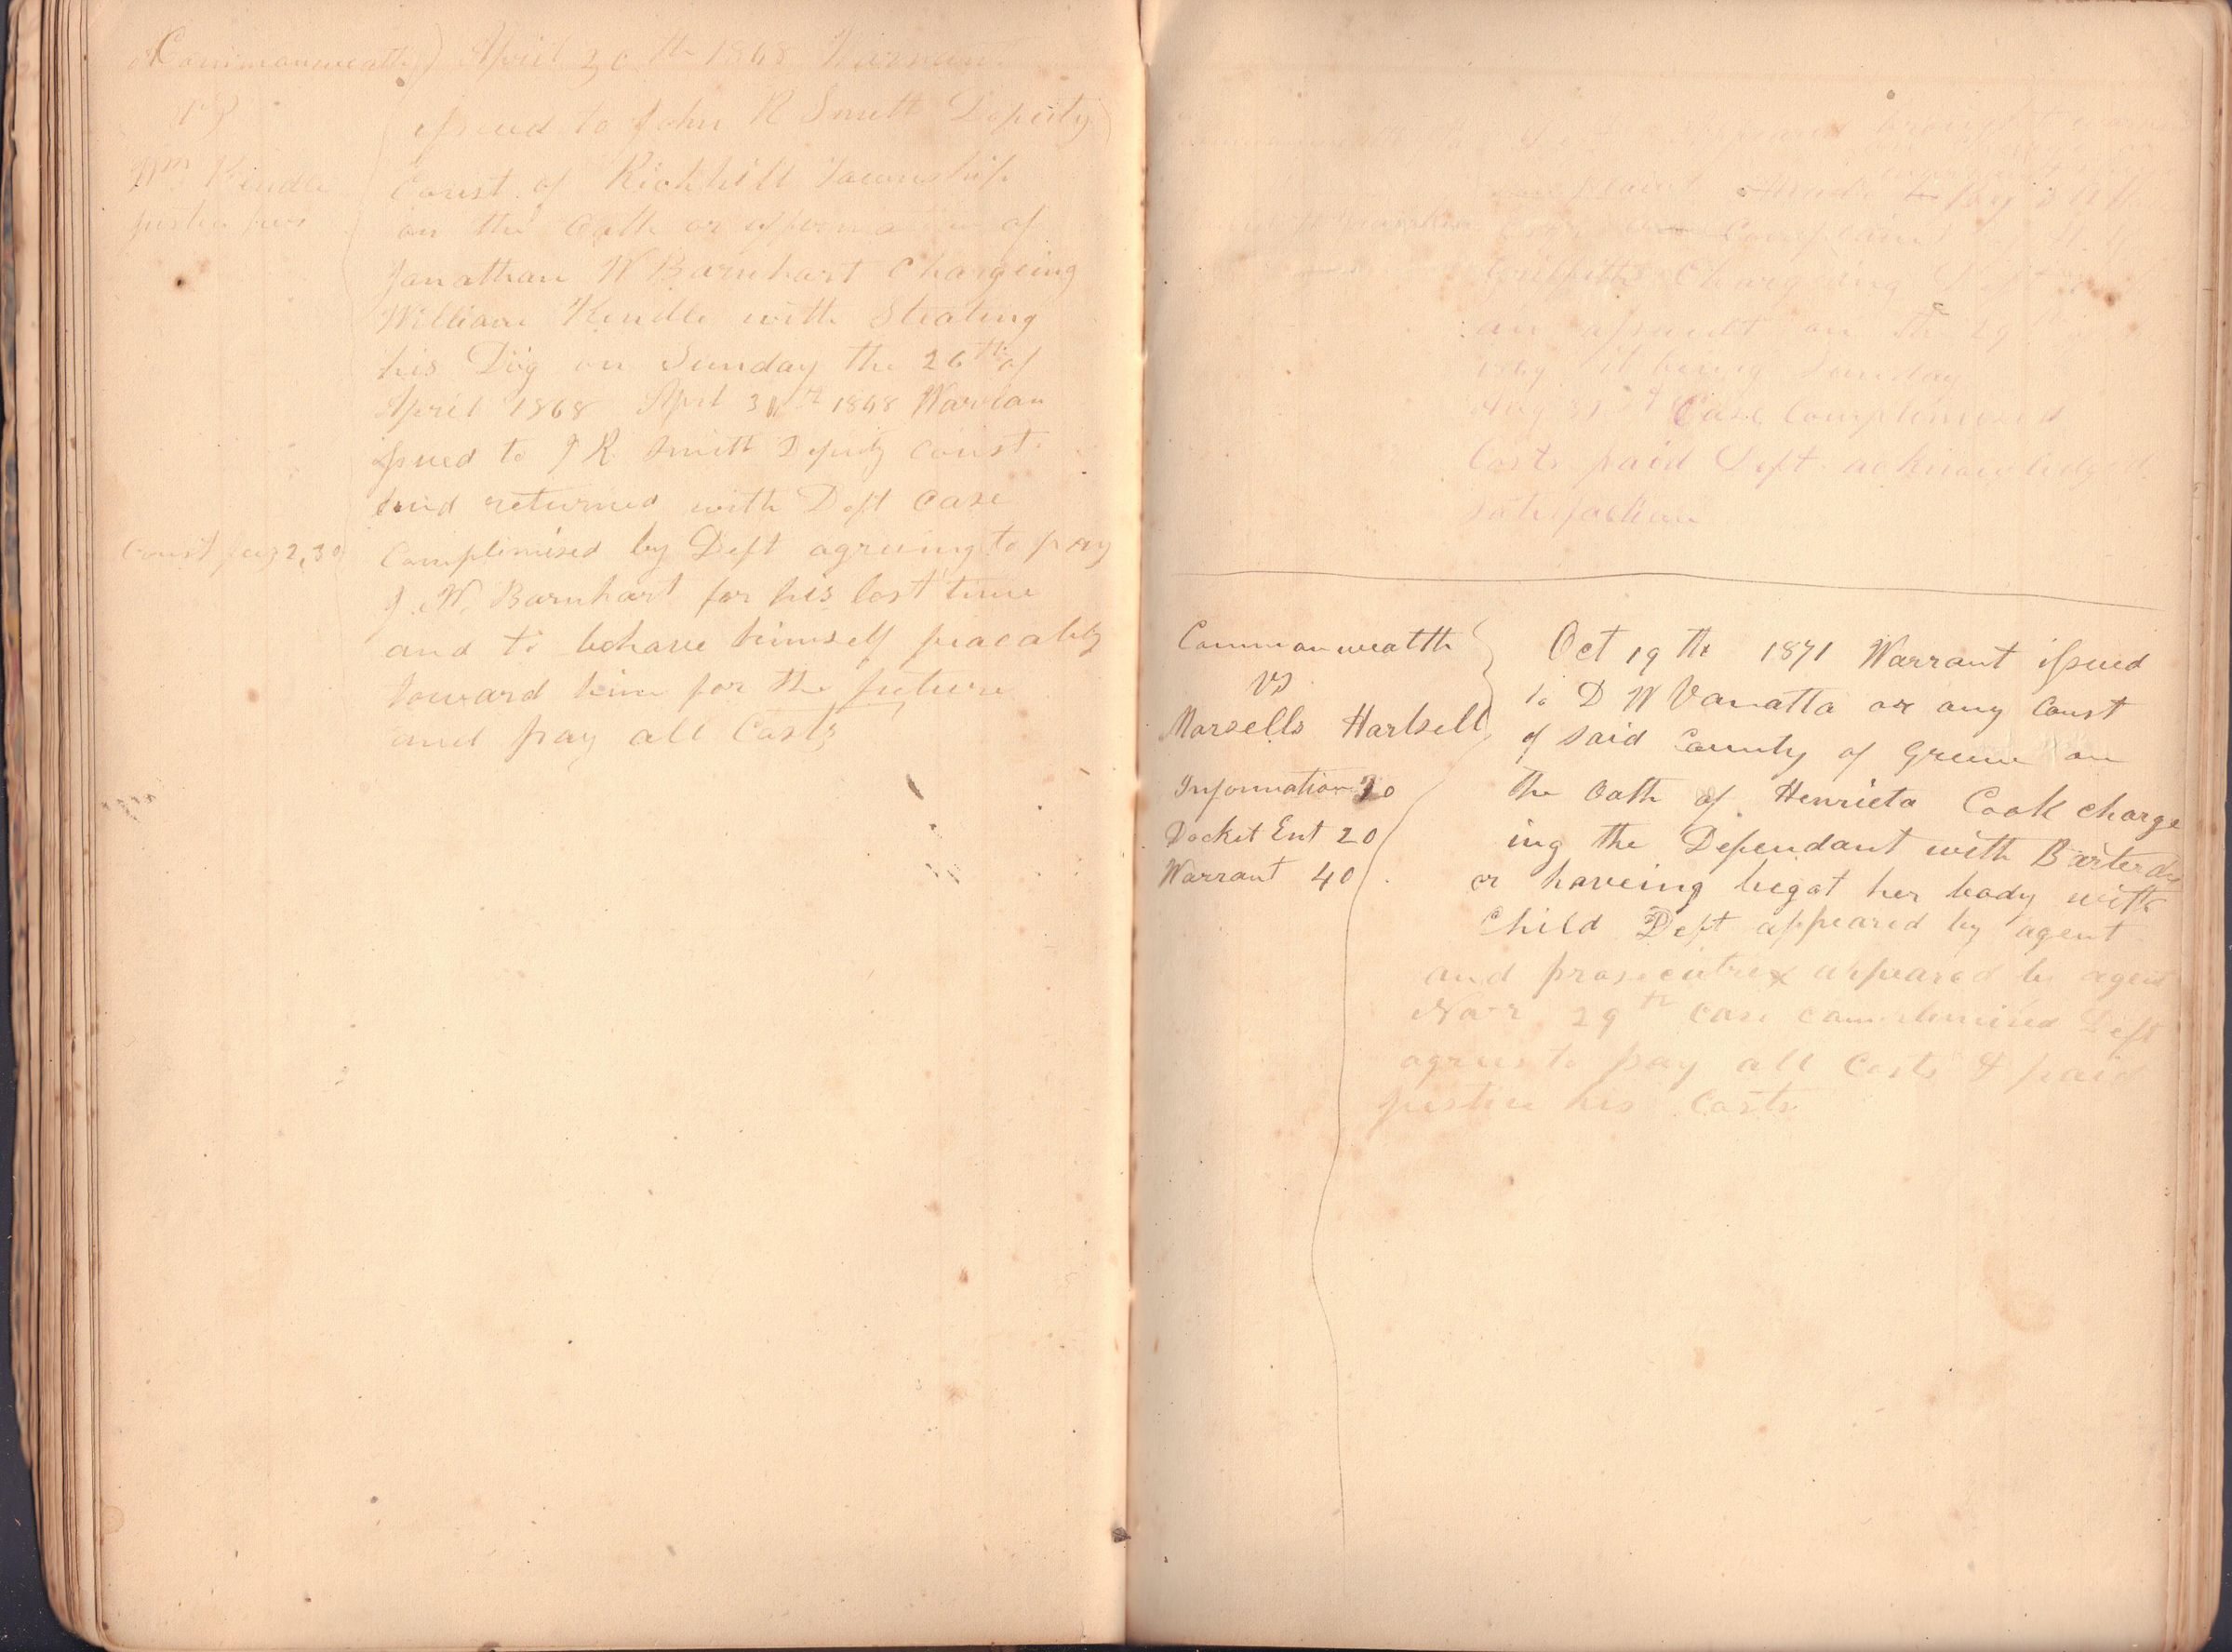 Commonwealth) April 30th 1868 Warrant
vs
issued to John R Smith Deputy
Wm Kendle
Const. of Richhill Township
justice fees
on the Oath or affirmation of
Jonathan W Barnhart Chargeing
William Kendle with Stealing
his Dog on Sunday the 26th of
April 1868 Aprl 30th 1868 Warran
issued to J R Smith Deputy Const
and returned with Deft Case
Const fees 2,30
Complimised by Deft agreeing to pay
J. W. Barnhart for his lost time
and to behave himself peacably
toward him for the future
and pay all Costs
Complaint
Griffith Chargeing Deft
an assault on the 29th
it being Sunday
Aug 31st Case Complimised
Costs paid Deft. acknowledged
satisfaction
Commonwealth
vs
Marsells Hartsell
Information
Docket Ent 20
Warrant 40
Oct 19th 1871 Warrant issued
to D W Vanatta or any Const
of said County of Greene on
the Oath of Henrieta Cook charge
ing the Defendant with
or haveing begot her body with
Child Deft appeared by agent
and prosecutrix appeared by agent
Nov 29th case complimised Deft
agrees to pay all Costs & paid
justice his Costs